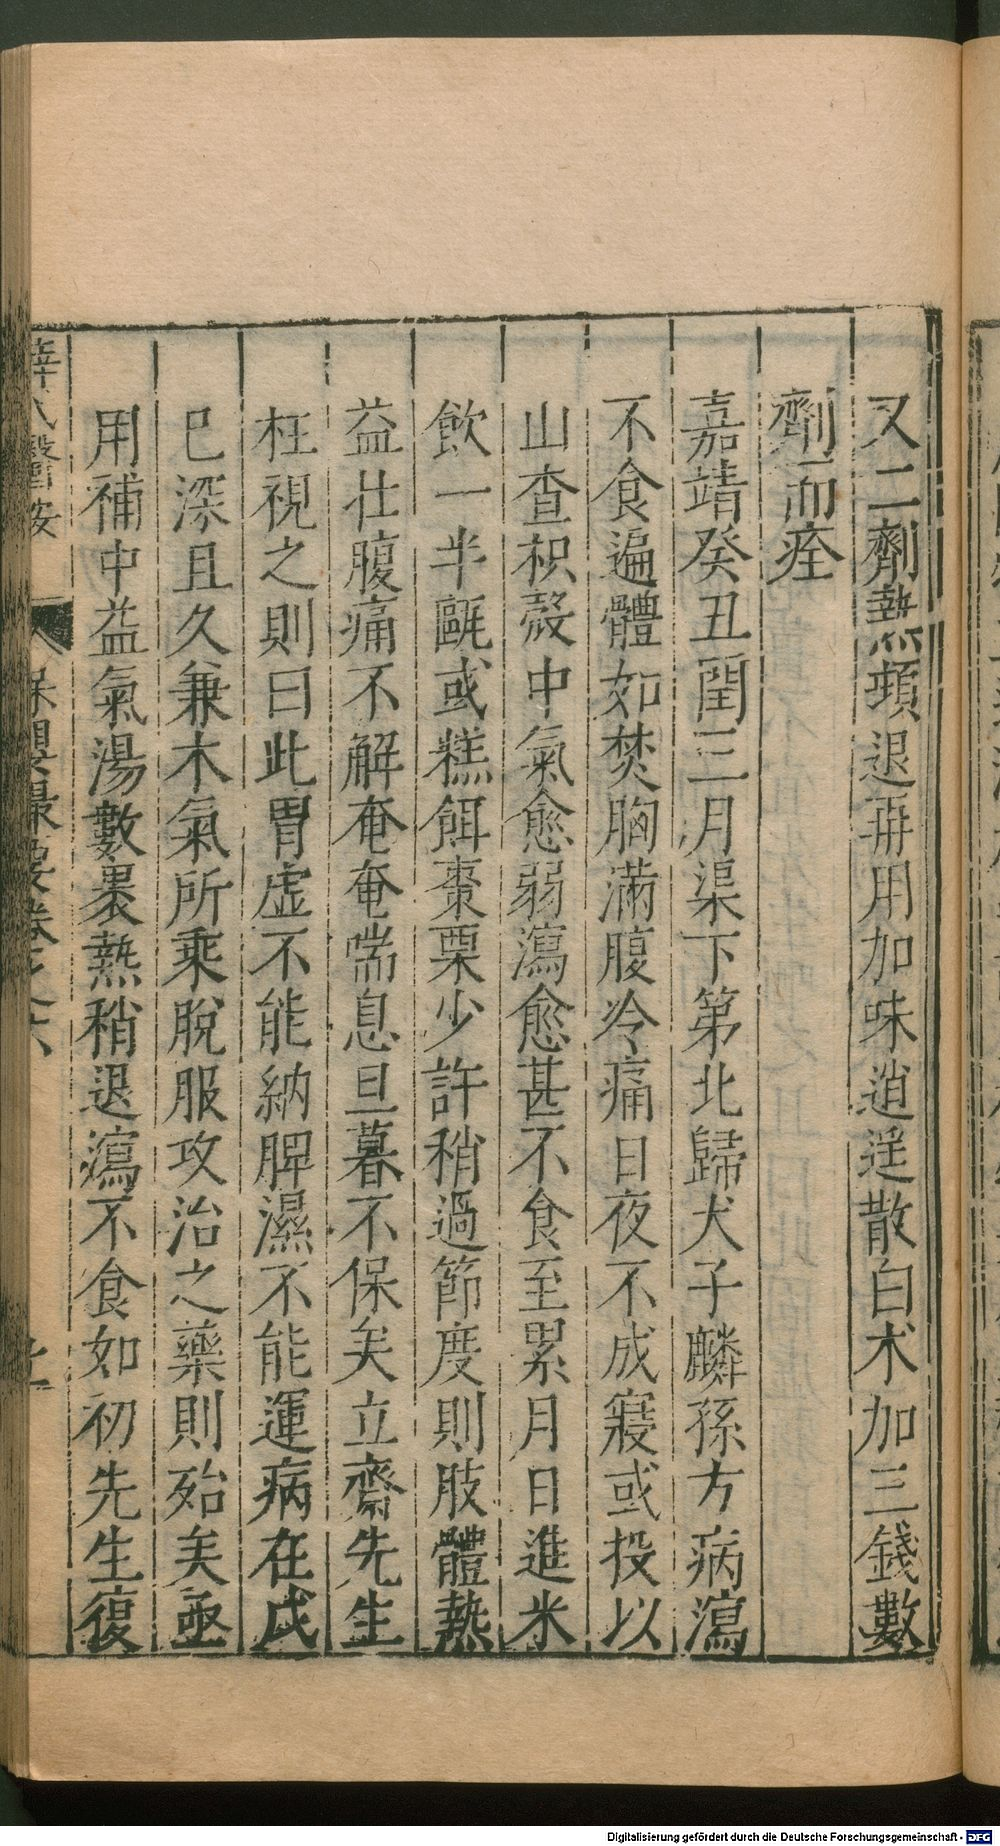 又二劑熱頓退再用加味逍遥散白术加三錢數
劑而痊
嘉靖癸丑閏三月渠下第北歸犬子麟孫方病瀉
不食遍體如焚胸滿腹冷痛日夜不成寢或投以
山查枳殼中氣愈弱瀉愈甚不食至累月日進米
飲一半甌或糕餌棗栗少許稍過節度則肢體熱
益壮腹痛不解奄奄喘息旦暮不保矣立齋先生
枉視之則曰此胃虚不能納脾濕不能運病在戊
巳深且久兼木氣所乘脫服攻治之藥則殆矣亟
用補中益氣湯數裹熱稍退瀉不食如初先生復
薛氏醫按
保嬰最要卷之六
Digitalisierung gefördert durch die Deutsche Forschungsgemeinschaft - DFG